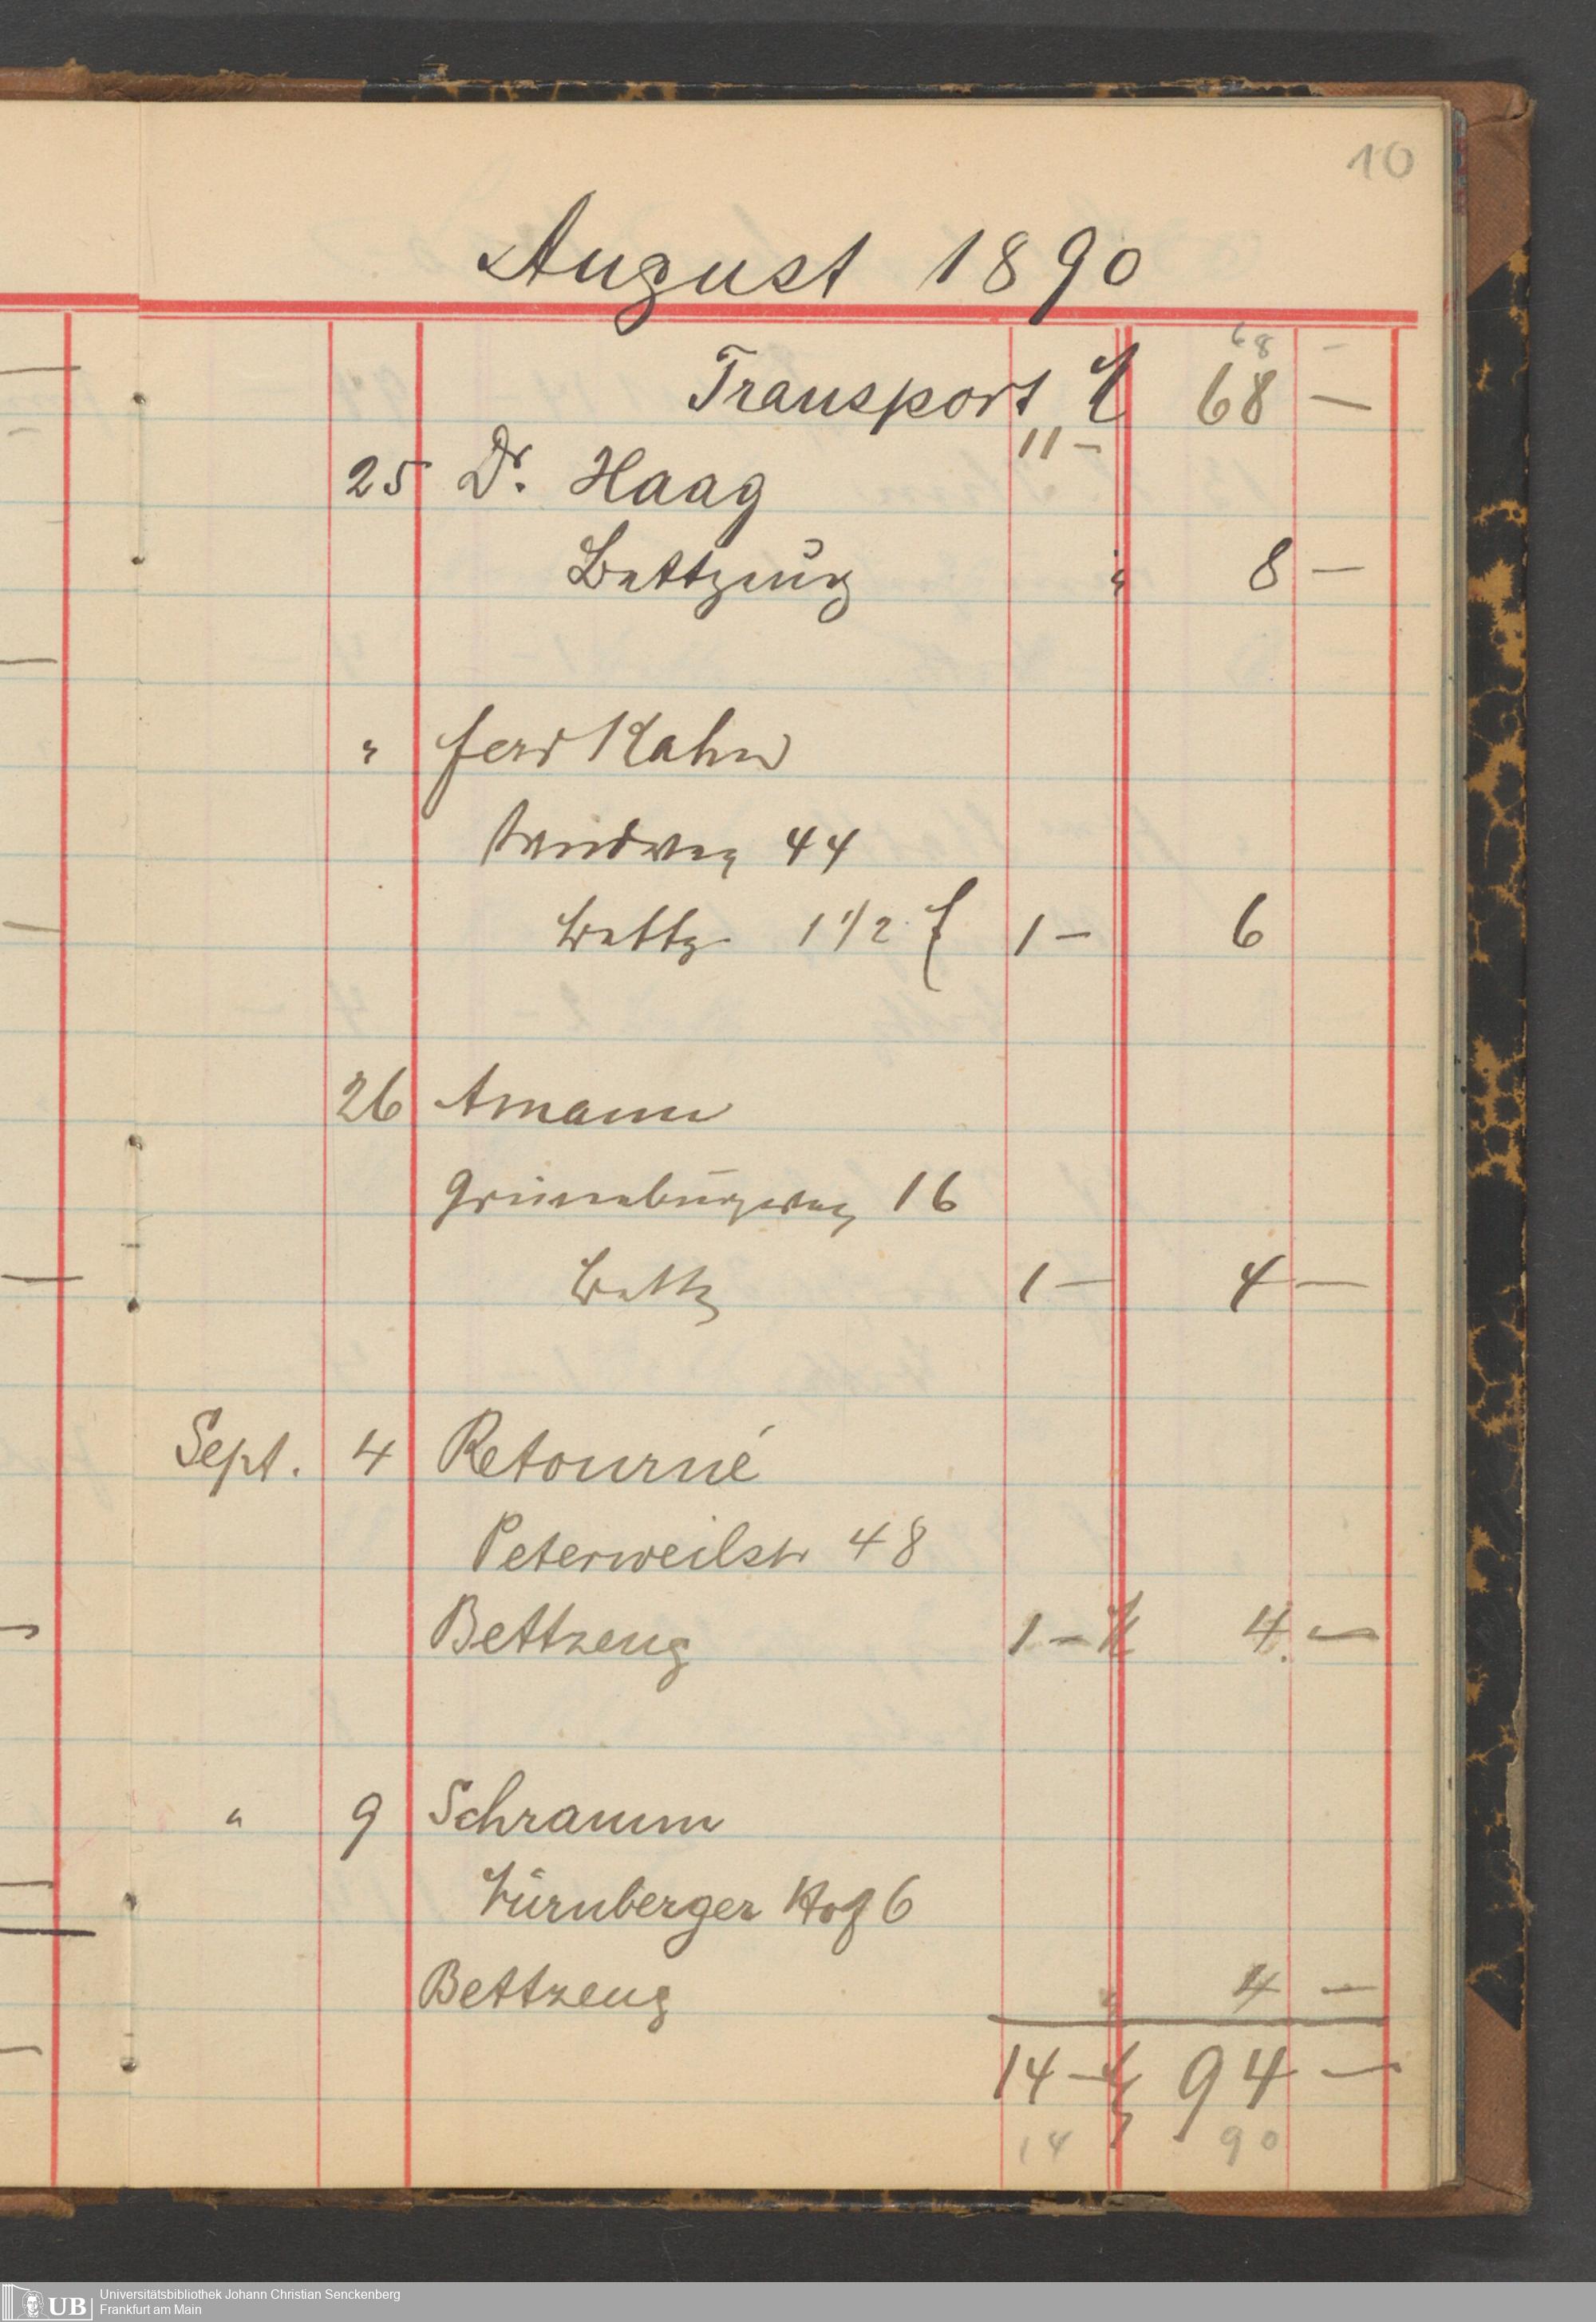 10
August 1890
68 -
Transport ℳ 68 —
11 -
25 Dr. Haag
Bettzeug " 8 —
" Ferd Kahn
44
Bettz. 1 1/2 f 1 - 6
26 Amann
Grüneburgweg 16
Bettz 1 — 4 —
Sept. 4 Retourné
Peterweilstr 48
Bettzeug 1 - ℳ 4. —
" 9 Schramm
Nürnberger Hof 6
Bettzeug " 4 —
14 - ℳ 94 —
14 90
UB Universitätsbibliothek Johann Christian Senckenberg
Frankfurt am Main